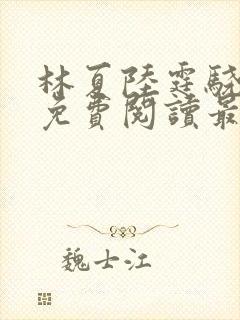 林夏陸霆驍
免費閱讀最
魏士江